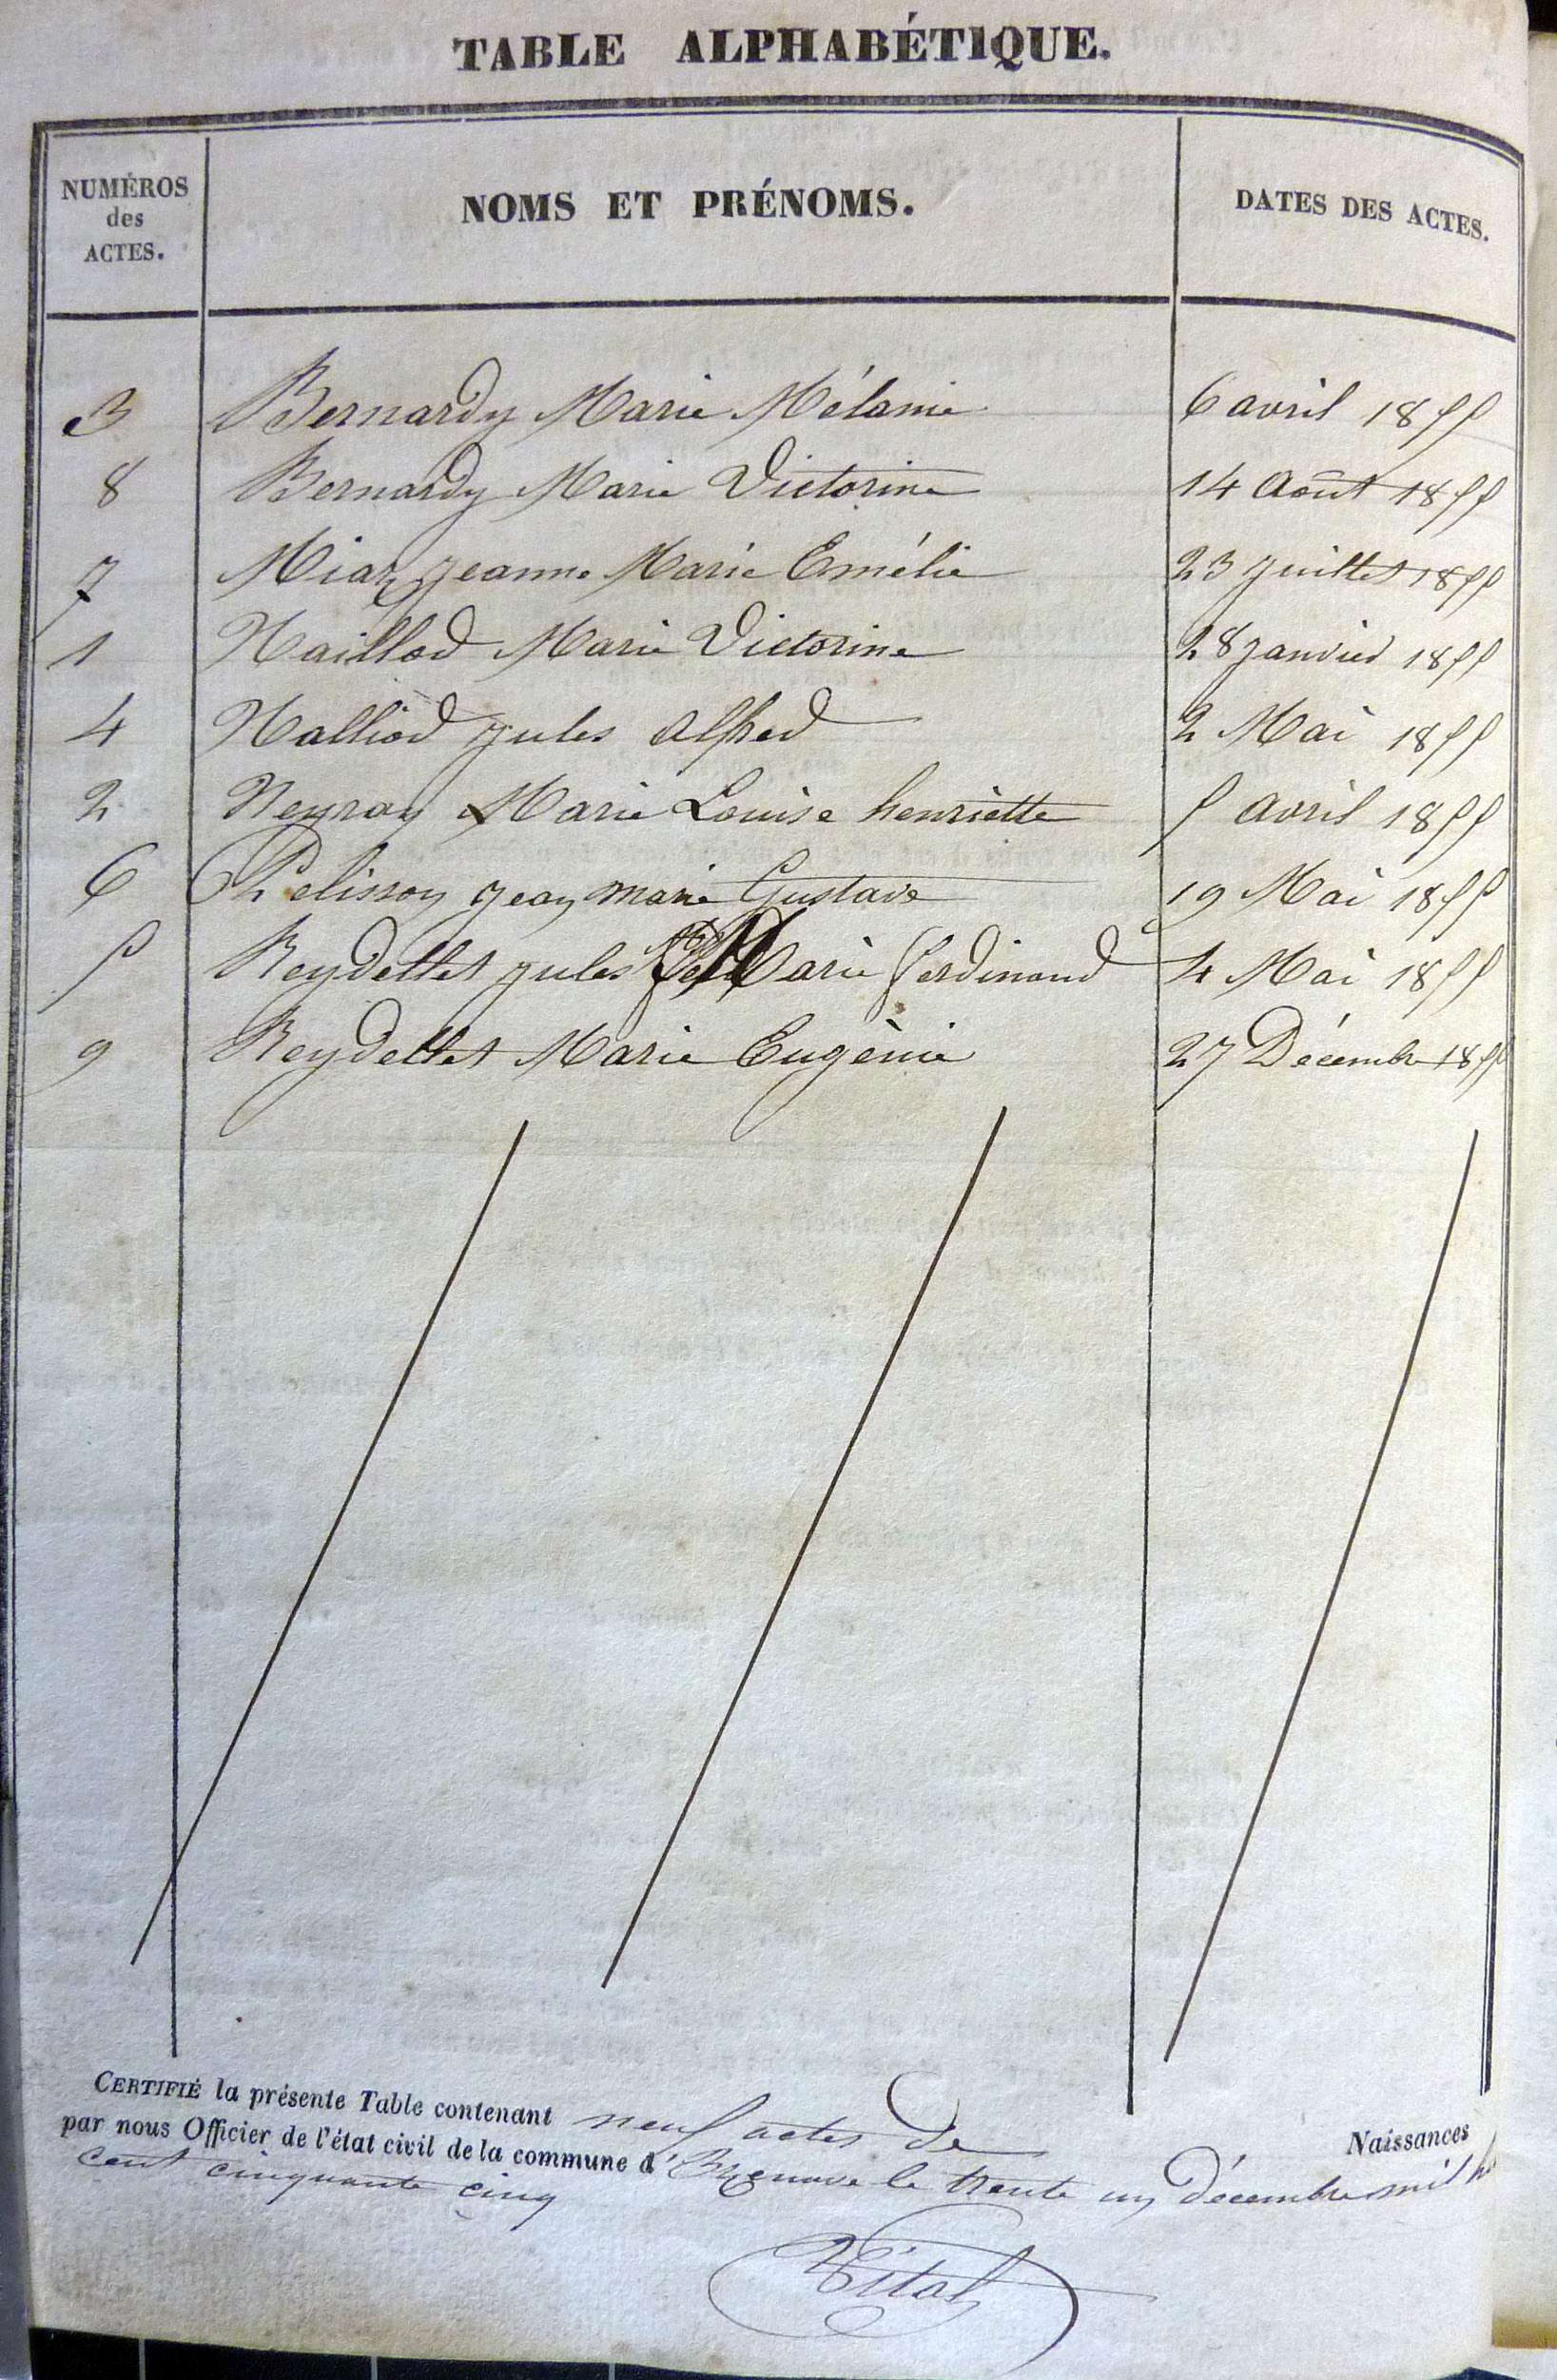 TABLE ALPHABÉTIQUE.
NUMÉROS des ACTES. NOMS ET PRÉNOMS. DATES DES ACTES.
3 Bernardy Marie Mélanie 6 avril 1855
8 Bernardy Marie Victorine 14 Août 1855
7 Miaz Jeanne Marie Emélie 23 Juillet 1855
1 Naillod Marie Victorine 28 Janvier 1855
4 Nalliod Jules Alfred 2 Mai 1855
2 Neyroy Marie Louise henriette 5 Avril 1855
6 Pelisson Jean marie Gustave 19 Mai 1855
5 Reydellet Jules Marie ferdinand 4 Mai 1855
9 Reydellet Marie Eugènie 27 Décembre 1855
CERTIFIÉ la présente Table contenant neuf actes de Naissances
par nous Officier de l'état civil de la commune d' le trente un Décembre mil
cent cinquante cinq